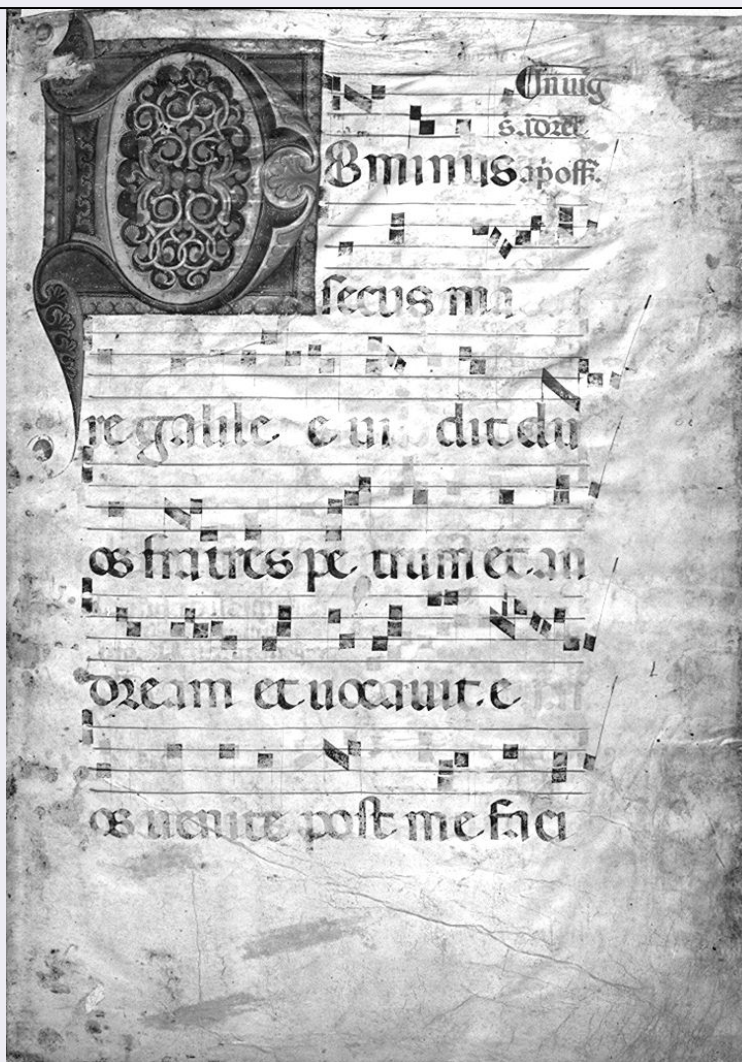 In uig
s. andree
apostoli.
Dominus
secus ma
re galile e ui dit du
os fratres pe trum et an
dream et uocauit e
os uenite post me faci